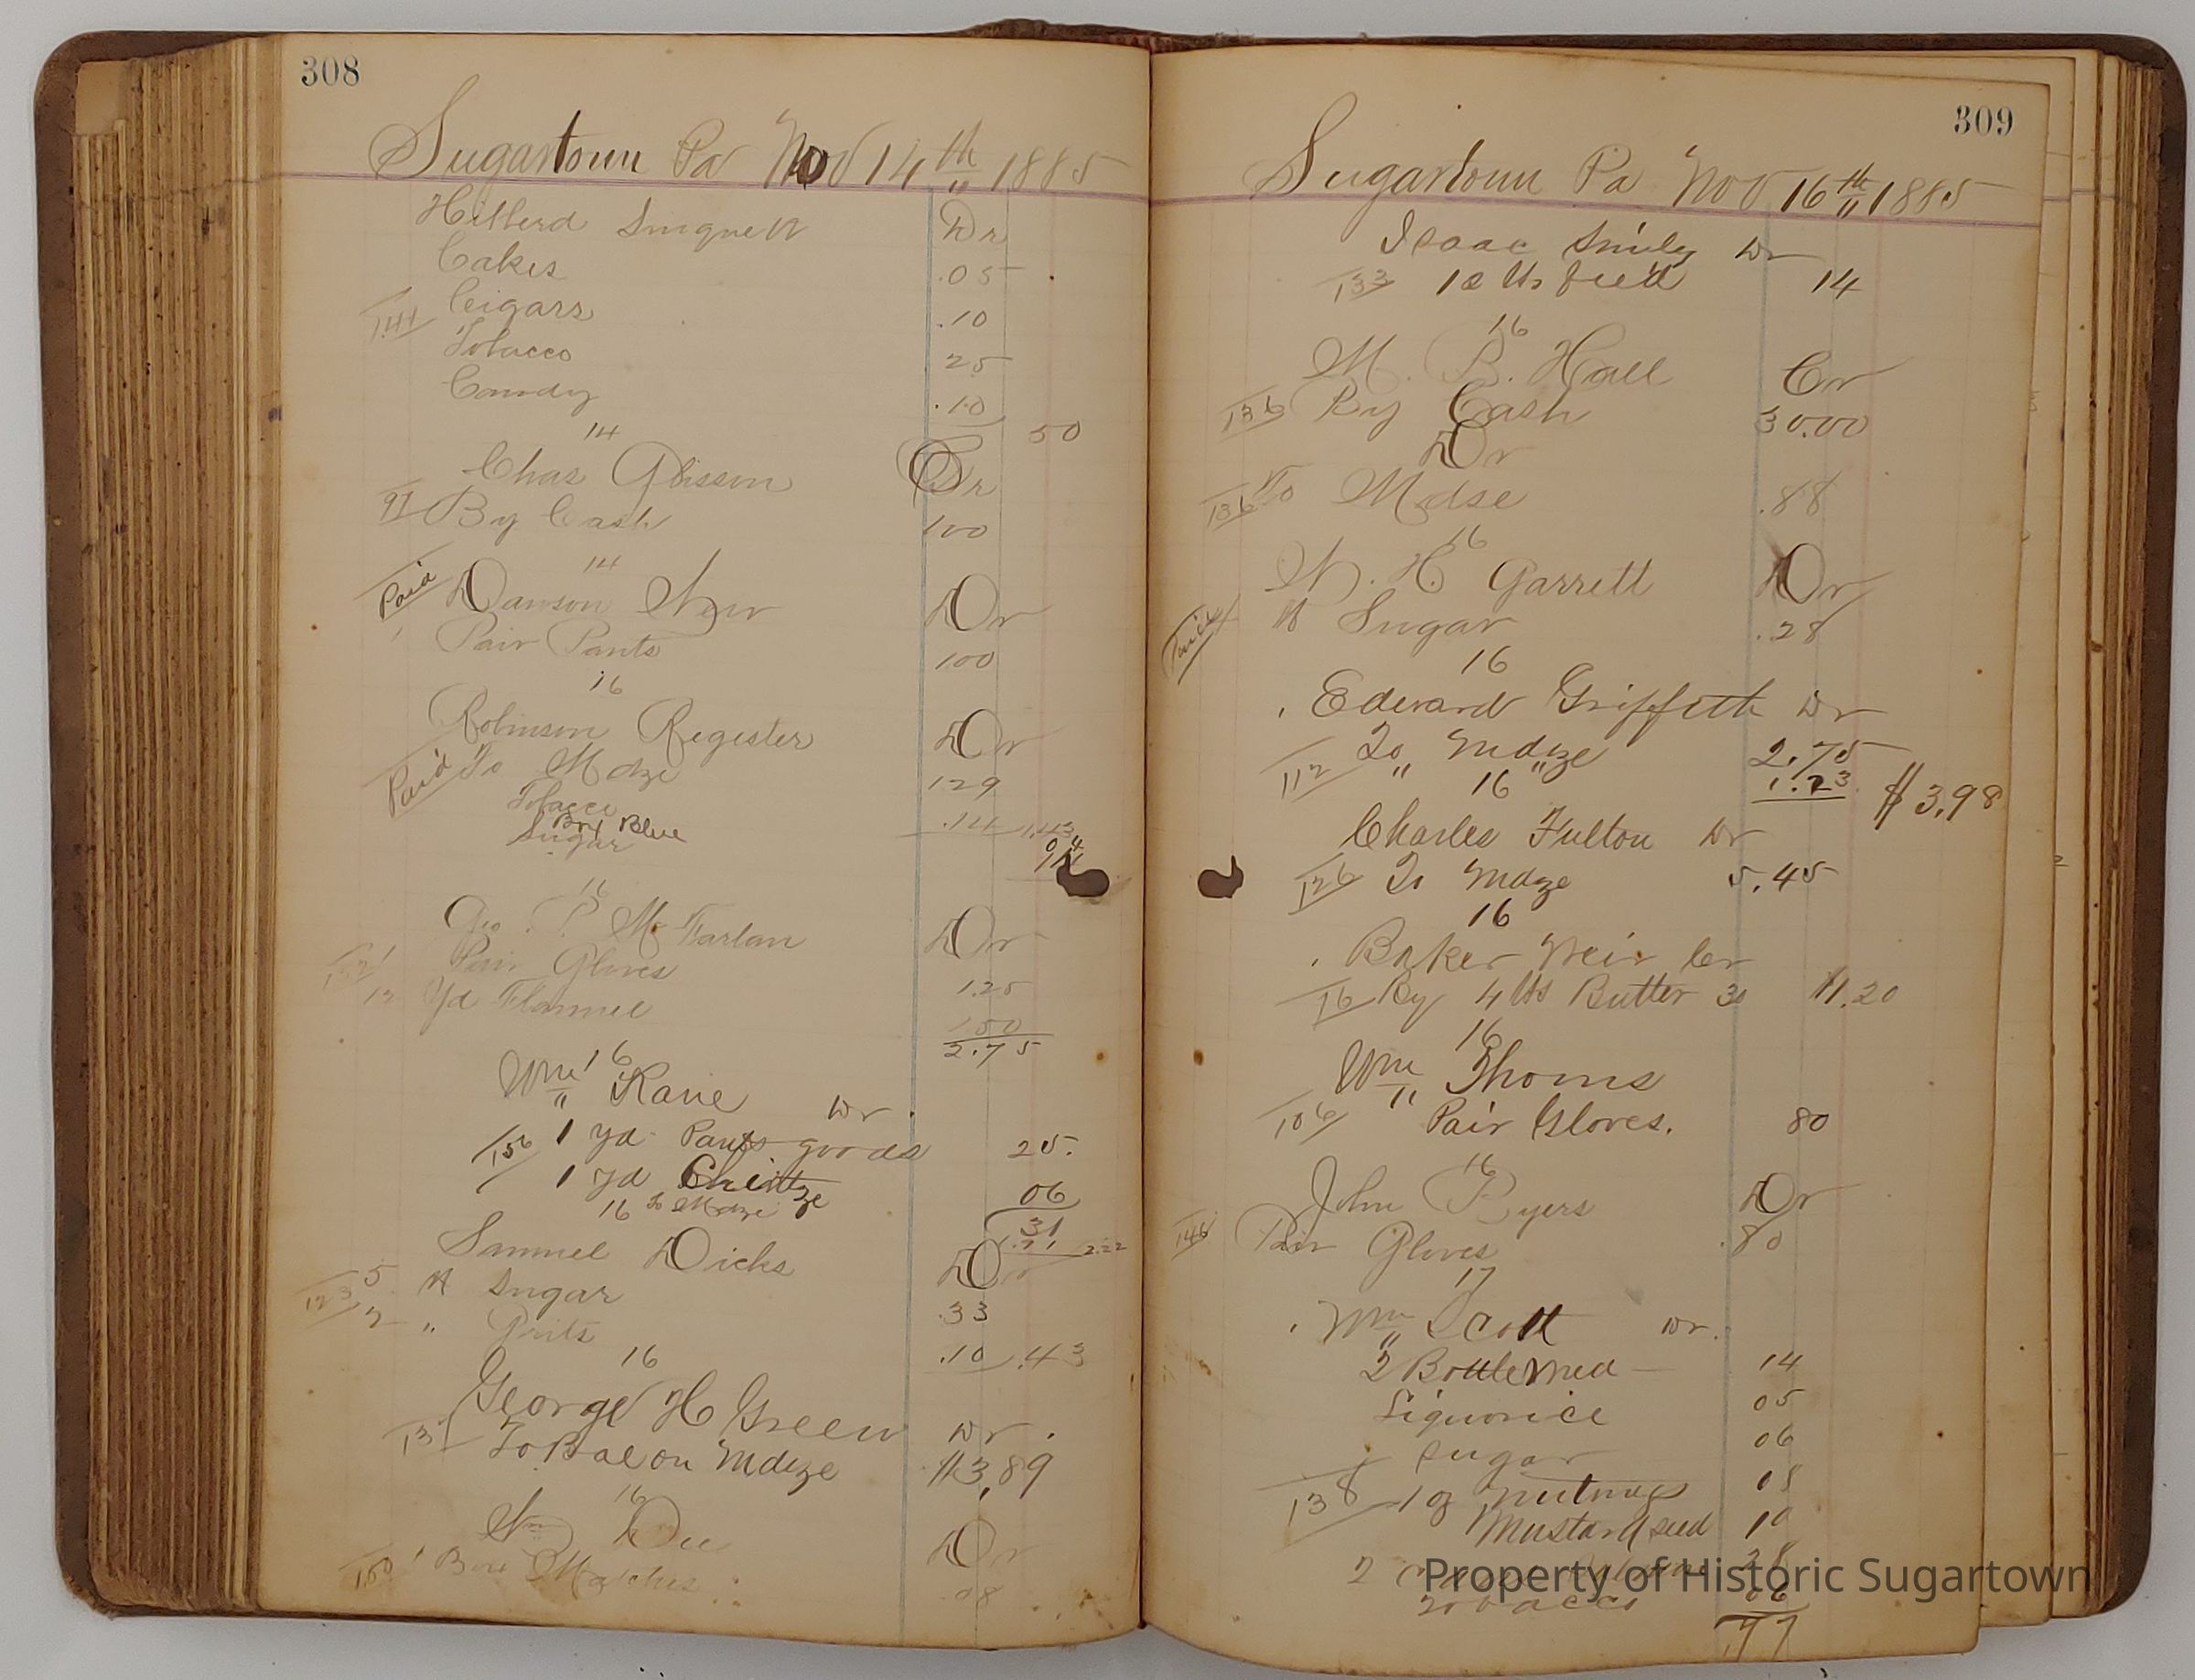 308
Sugartown Pa Nov 14th 1885
Hillerd Dr
Cakes .05
144 Cigars .10
Tobacco 25
Candy .10 50
14
Chas Glisson Dr
97 By Cash 100
14
Paid Dawson Dr
Pair Pants 100
16
Robinson Register Dr
Paid To Mdze 129
Tobacco .14 1.43
Bx Blue 04
Sugar
16
Geo. P. McFarlan Dr
1 Pair Gloves 1.25
12 Yd Flannel 1.50
2.75
16
Wm Kane Dr.
156 1 yd Pants goods 25.
1 yd 06
31
16 To Mdze 2.22
Samuel Dicks Dr
123 5 lb Sugar .33
2 " Grits .10 .43
16
George H Green Dr.
131 To Bacon Mdze $3,89
16
Wm Dr
150 1 Box Matches .08
309
Sugartown Pa Nov 16th 1885
Isaac Smily Dr
133 10 lbs feed 14
16
M. P. Hall Cr
136 By Cash 30.00
Dr
136 To Mdse .88
16
N. H. Garrett Dr
lb Sugar .28
16
Edward Griffith Dr
112 To Mdze 2.75
" " 1.23 $3.98
16
Charles Fulton Dr
126 To Mdze 5.45
16
Baker Weir Cr
16 By 4 lbs Butter 30 $1.20
16
Wm Thoms
106 Pair Gloves. 80
16
John Pyers Dr
146 Pair Gloves .80
17
Wm Scott Dr.
2 Bottle Med 14
Liquorice 05
Sugar 06
138 1 oz Nutmegs 08
Mustard seed 10
2 28
Tobacco 06
.77
Property of Historic Sugartown